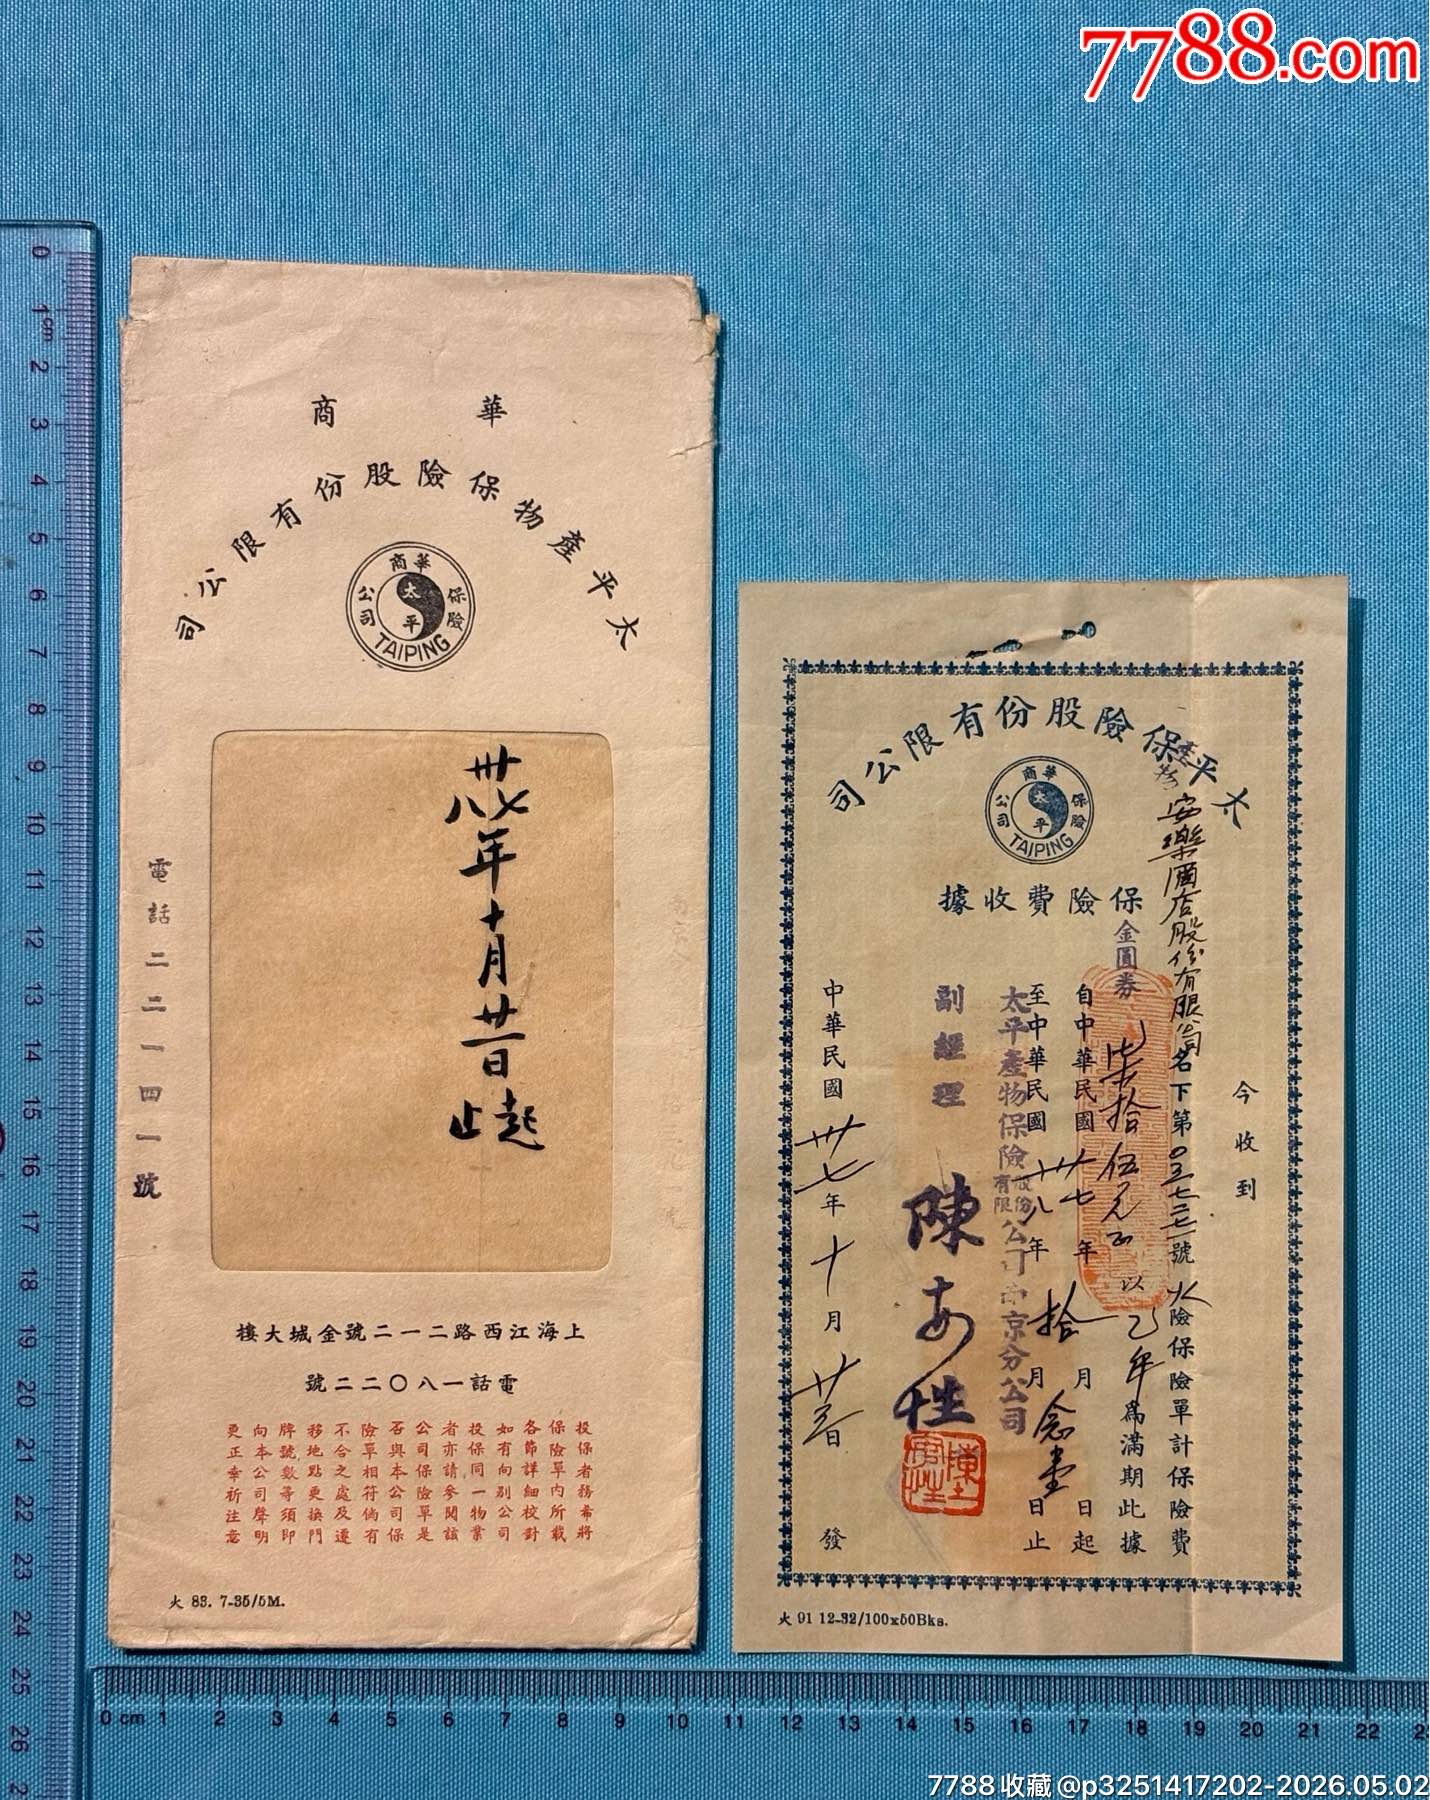 7788.com
華商
太平產物保險股份有限公司
華商
太平
保險
公司
TAIPING
卅七年十月廿一日起
八 止
電話二二一四一號
上海江西路二一二號金城大樓
電話一八〇二二號
投保者務希將
保險單內所載
各節詳細校對
如有向別公司
投保同一物業
者亦請參閱該
公司保險單是
否與本公司保
險單相符倘有
不合之處及遷
移地點更換門
牌號數等須即
向本公司聲明
更正幸祈注意
火 83. 7-35/5M.
太平產物保險股份有限公司
華商
太平
保險
公司
TAIPING
保險費收據
今收到
安樂酒店股份有限公司名下第 號火險保險單計保險費
金圓券柒拾伍元正以乙年為滿期此據
自中華民國卅七年拾月念壹日起
至中華民國卅八年 月 日止
太平產物保險股份有限公司南京分公司
副經理
陳安性
中華民國卅七年十月廿 日發
火 91 12-32/100x50Bks.
0 1cm 2 3 4 5 6 7 8 9 10 11 12 13 14 15 16 17 18 19 20 21 22 23 24 25 26
0 cm 1 2 3 4 5 6 7 8 9 10 11 12 13 14 15 16 17 18 19 20 21 22
7788收藏@p3251417202-2026.05.02